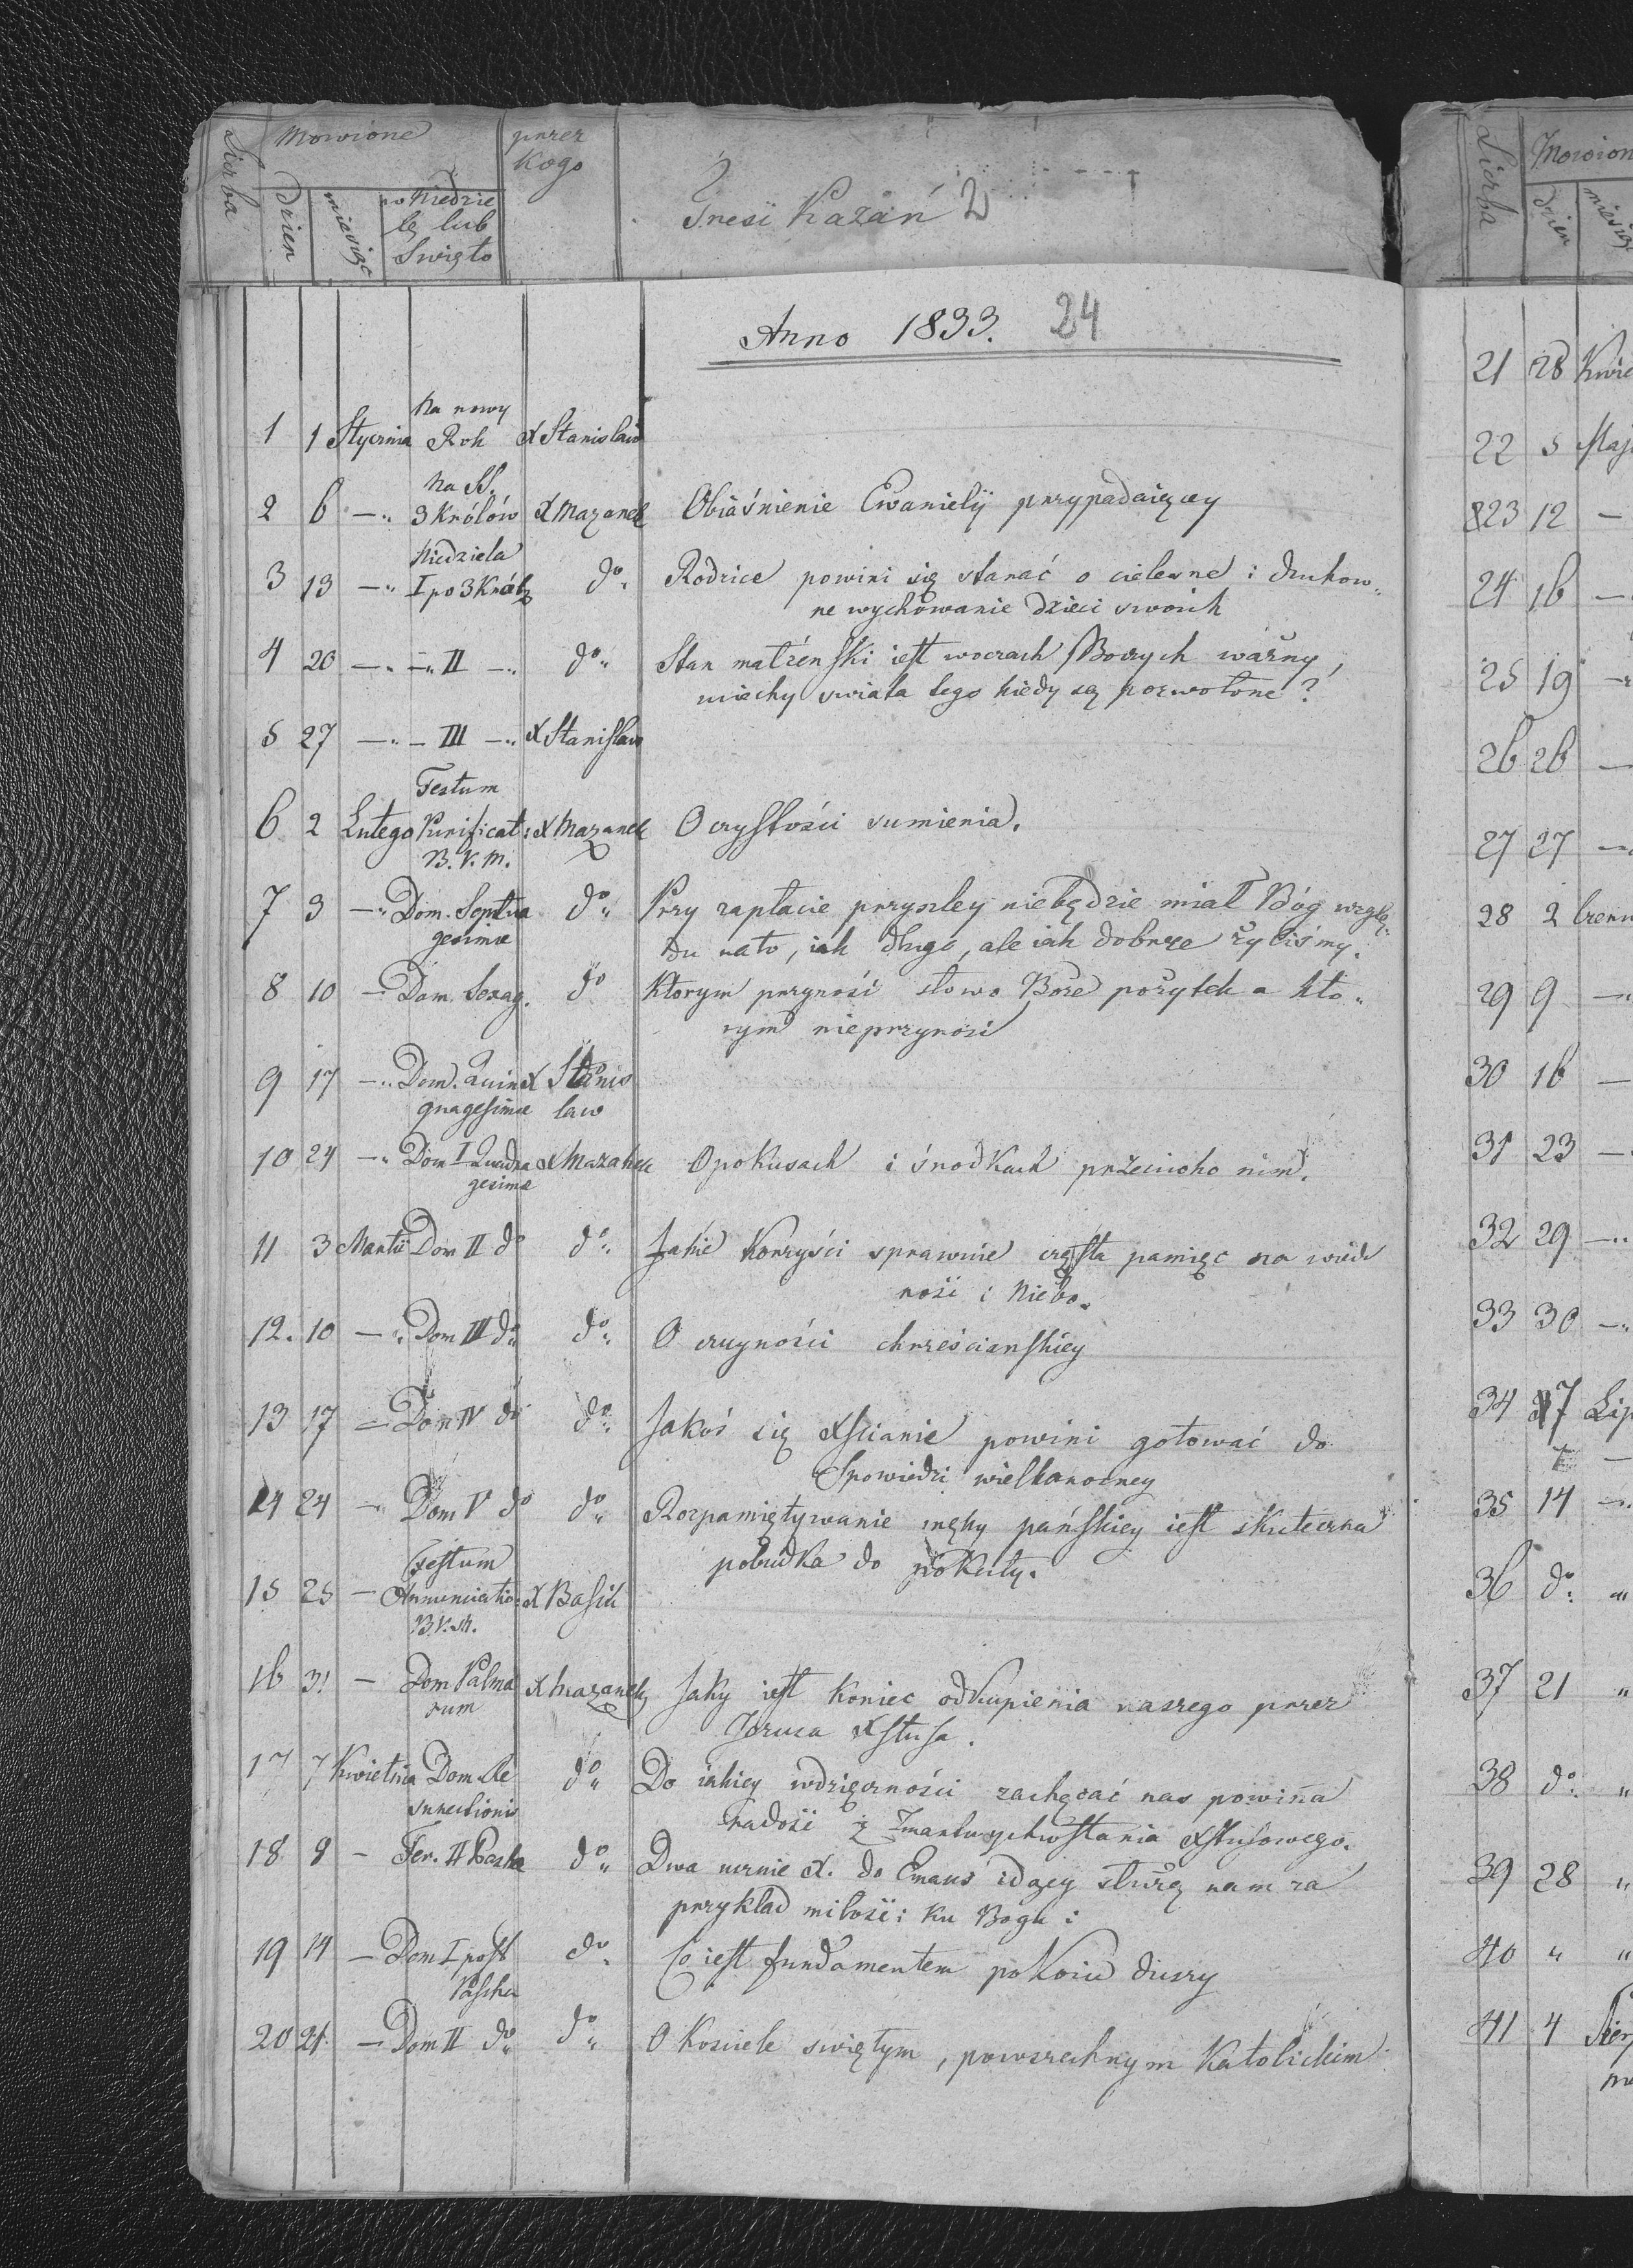 Liczba Mowione przez Kogo Treść Kazań 2
Dzien miesiąc w Niedzie
lę lub
Swięto
Anno 1833. 24
1 1 Stycznia Na nowy Rok X Stanislaw
2 6 —„ Na SS. 3 Królów X Mazanek Obiaśnienie Ewanielij przypadaiącey
3 13 —„ Niedziela I po 3 Królą do„ Rodzice powini się starać o cielesne i duchow„
ne wychowanie dzieci swoich
4 20 —„ —„ II —„ do„ Stan małżenski iest woczach Bożych ważny,
uciechy swiata tego kiedy są pozwolone?
5 27 —„ — III —„ X Stanislaw
6 2 Lutego Festum Purificat: B. V. M. X Mazanek O czystości sumienia.
7 3 —„ Dom. Septua
gesimæ do„ Przy zapłacie przyszley niebędzie miał Bóg wzglę„
du nato, iak długo, ale iak dobrze żyliśmy.
8 10 — Dom. Sexag. do Ktorym przynosi słowo Boże pożytek a kto„
rym nieprzynosi
9 17 —„ Dom. Quin
quagesimæ X Stanis
law
10 24 —„ Dom I Quadra
gesimæ X Mazanek O pokusach i środkach przeciwko nim.
11 3 Martii Dom II do do„ Jakie Korzyści sprawuie częsta pamięc na wiecz
nośi i Niebo„
12. 10 —„ Dom III do„ do„ O czuyności chrześcianskiey
13 17 — Dom IV do do„ Jakoś się Xscianie powini gotować do
Spowiedzi wielkanocney
14 24 —„ Dom V do do„ Rozpamiętywanie męky pańskiey iest skuteczna
pobudka do pokuty.
15 25 — Festum
Annunciatio:
B.V.M. X Basik
16 31 — Dom Palma
rum X Mazanek Jaky iest koniec odkupienia naszego przez
Jezusa Xstusa.
17 7 Kwietnia Dom Re
surrectionis do„ Do iakiey wdzięczności zachęcać nas powina
radośi z Zmartwychwstania Xstusowego.
18 8 — Fer. II Pascha do„ Dwa ucznie X. do Emaus idący służą nam za
przykład miłośi: ku Bogu:
19 14 — Dom I post
Pascha do„ Co iest fundamentem pokoiu duszy
20 21. — Dom II do„ do„ O Kosciele swiętym, powszechnym Katolickim
Liczba Mowion
dzien miesiąc
21 28 Kwie
22 5 Maj
23 12 —
24 16 —
25 19 —
26 26 —
27 27 —
28 2 Czerw
29 9 —
30 16 —
31 23 —
32 29 —„
33 30 —„
34 7 Lip
35 14 —„
36 do: „
37 21 „
38 do: „
39 28 „
40 „ „
41 4 Sier